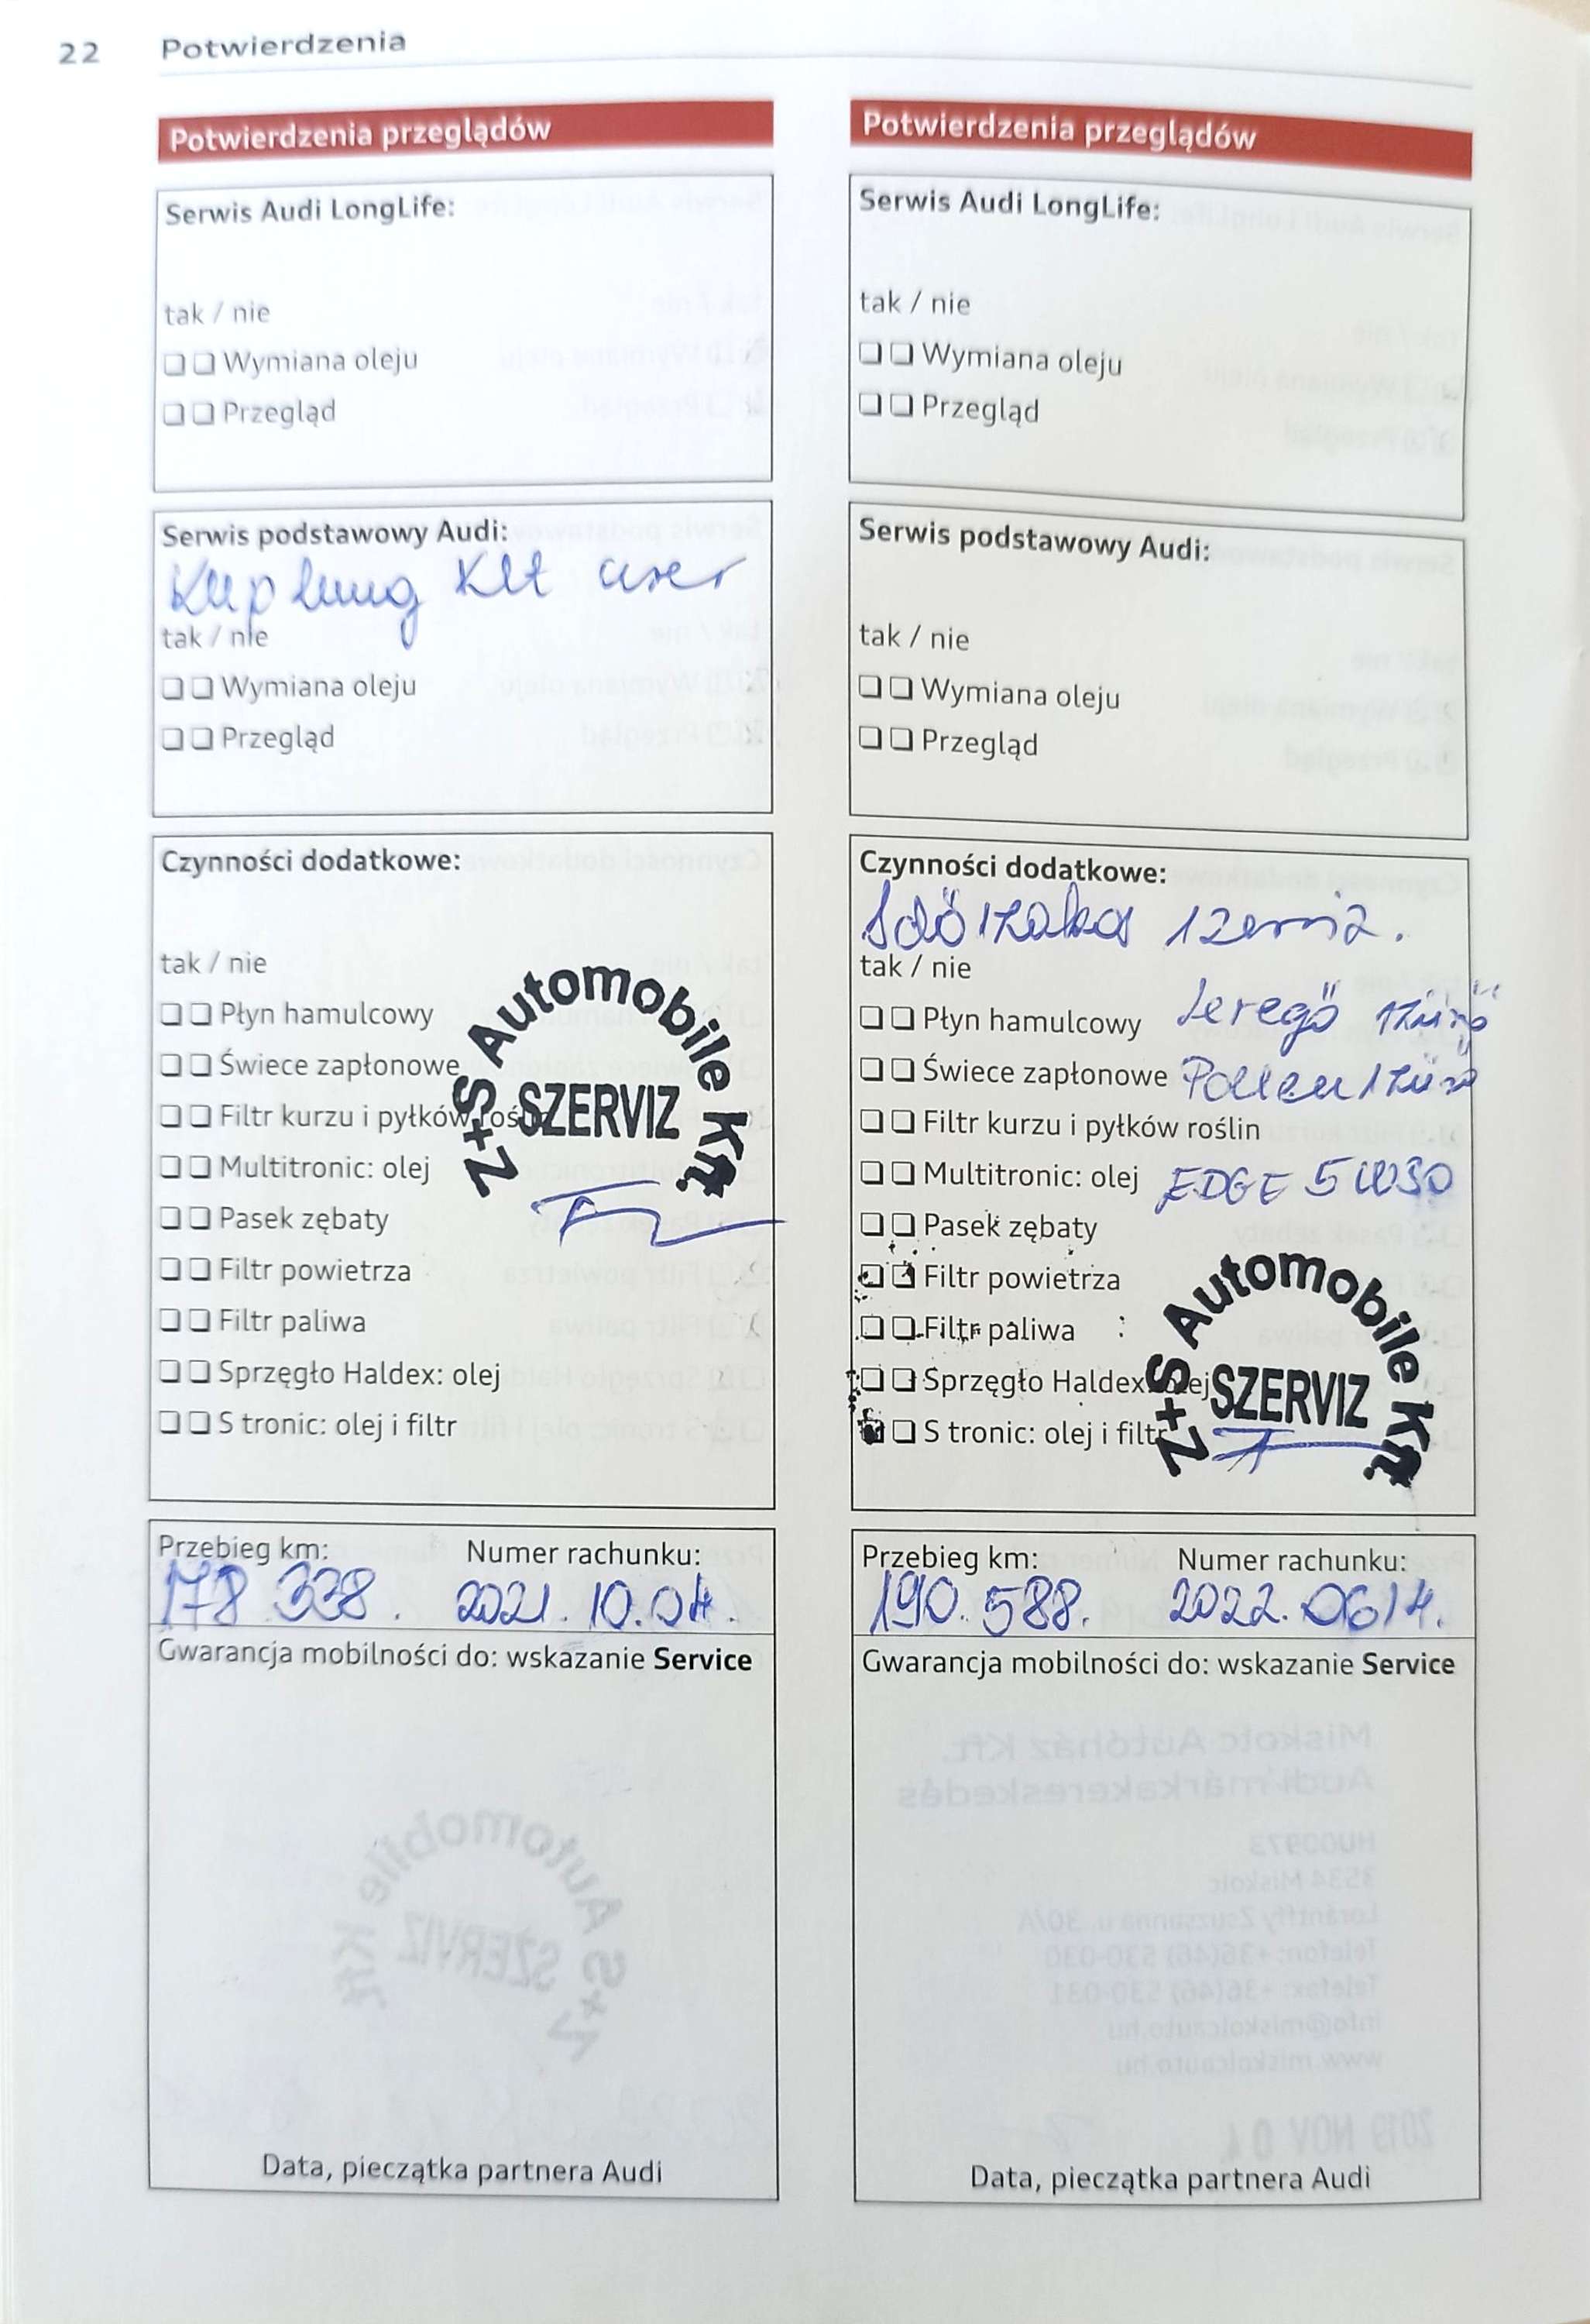 22 Potwierdzenia
Potwierdzenia przeglądów
Serwis Audi LongLife:
tak / nie
❏ ❏ Wymiana oleju
❏ ❏ Przegląd
Serwis podstawowy Audi:
Kuplung Klt cser
tak / nie
❏ ❏ Wymiana oleju
❏ ❏ Przegląd
Czynności dodatkowe:
tak / nie
❏ ❏ Płyn hamulcowy
❏ ❏ Świece zapłonowe
❏ ❏ Filtr kurzu i pyłków
❏ ❏ Multitronic: olej
❏ ❏ Pasek zębaty
❏ ❏ Filtr powietrza
❏ ❏ Filtr paliwa
❏ ❏ Sprzęgło Haldex: olej
❏ ❏ S tronic: olej i filtr
Z+S Automobile Kft.
SZERVIZ
Przebieg km: Numer rachunku:
178 338. 2021.10.04.
Gwarancja mobilności do: wskazanie Service
Data, pieczątka partnera Audi
Potwierdzenia przeglądów
Serwis Audi LongLife:
tak / nie
❏ ❏ Wymiana oleju
❏ ❏ Przegląd
Serwis podstawowy Audi:
tak / nie
❏ ❏ Wymiana oleju
❏ ❏ Przegląd
Czynności dodatkowe:
Időszakos szerviz.
tak / nie
❏ ❏ Płyn hamulcowy Levegő szűrő
❏ ❏ Świece zapłonowe Pollen szűrő
❏ ❏ Filtr kurzu i pyłków roślin
❏ ❏ Multitronic: olej EDGE 5W30
❏ ❏ Pasek zębaty
❏ ❏ Filtr powietrza
❏ ❏ Filtr paliwa
❏ ❏ Sprzęgło Haldex: olej
❏ ❏ S tronic: olej i filtr
Z+S Automobile Kft.
SZERVIZ
Przebieg km: Numer rachunku:
190.588. 2022.0614.
Gwarancja mobilności do: wskazanie Service
Data, pieczątka partnera Audi